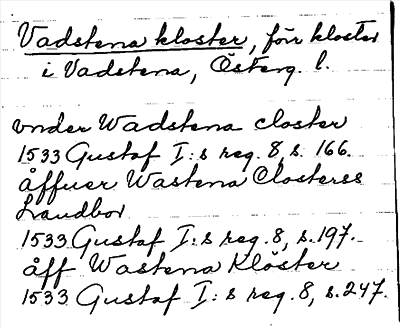 Vadstena kloster, förr kloster
i Vadstena, Österg. l.
vnder Wadstena closter
1533 Gustaf I:s reg. 8, s. 166.
åffuer Wastena Closterss
Landbor
1533 Gustaf I:s reg. 8, s. 197.
åff Wastena Klöster
1533 Gustaf I:s reg. 8, s. 247.